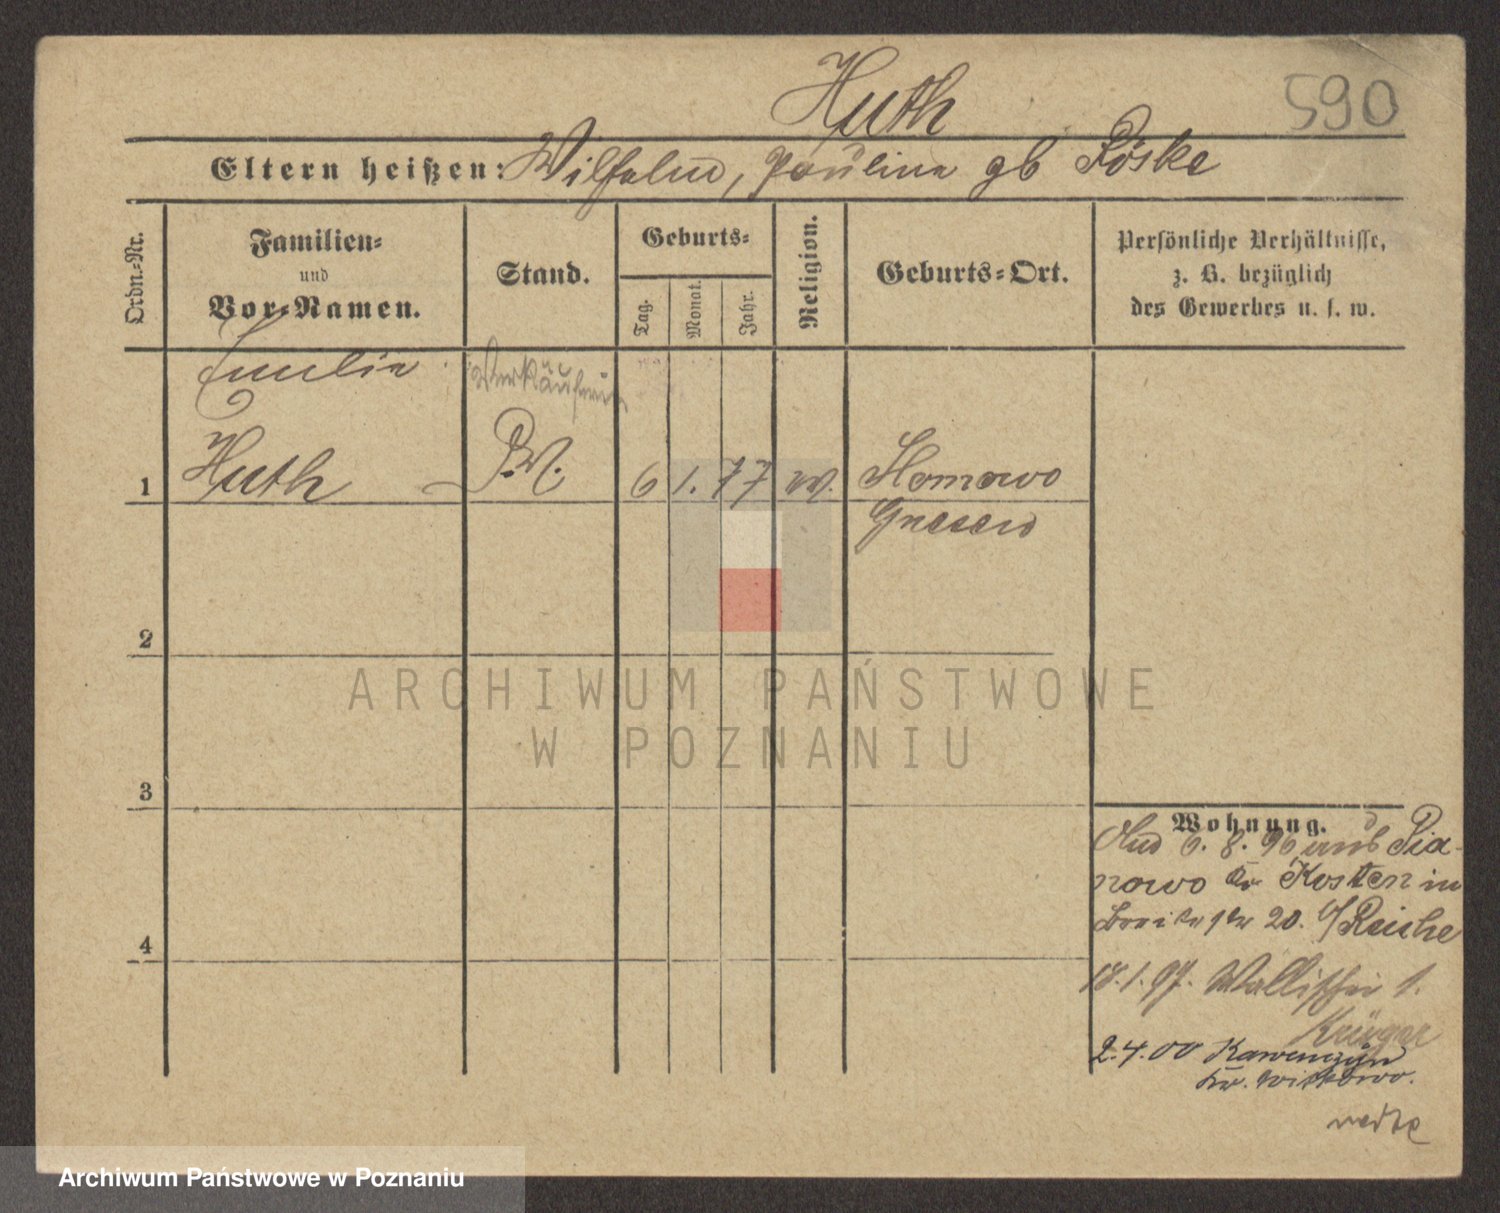 Huth
590
Eltern heißen: Wilhelm, Pauline gb Röske
Ordn.-Nr.
Familien-
und
Vor-Namen.
Stand.
Geburts-
Tag.
Monat.
Jahr.
Religion.
Geburts-Ort.
Persönliche Verhältnisse,
z. B. bezüglich
des Gewerbes u. s. w.
Emilie
Verkäuferin
1 Huth P.W. 6 1. 77 w. Slomowo
Gnesen
2
3
4
Wohnung.
6. 8. 96 aus Pia-
nowo Kr Kosten in
Breitestr 20. b/Reiche
18.1.97. Wallischei 1.
Krüger
2.4.00 Kawenczyn
Kr. Witkowo.
ARCHIWUM PAŃSTWOWE
W POZNANIU
Archiwum Państwowe w Poznaniu